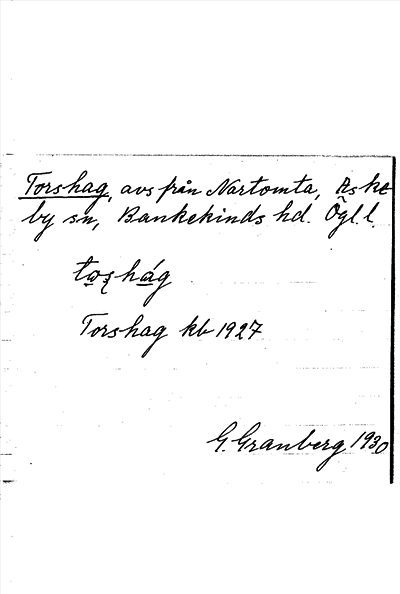 Torshag, avs från Nartomta, Aske-
by sn, Bankekinds hd. Ögl. l.
toʂhág
Torshag kb 1927
G. Granberg 1930